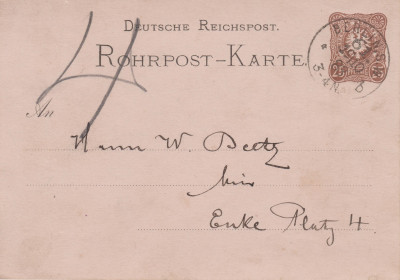 DEUTSCHE REICHSPOST.
ROHRPOST-KARTE.
4
An
Herrn W. Beetz
hier
Enke Platz 4